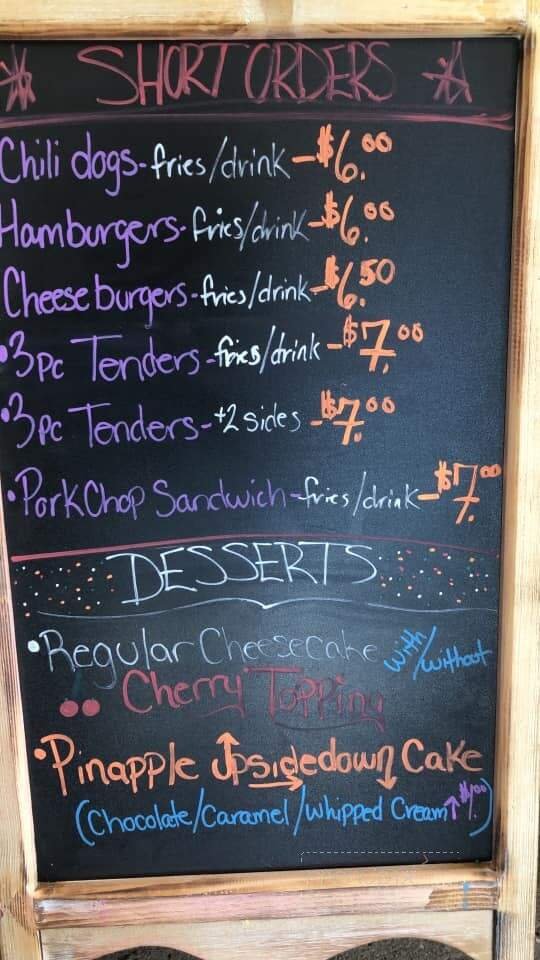 SHORT ORDERS
Chili dogs - fries/drink - $6.00
Hamburgers - fries/drink - $6.00
Cheeseburgers - fries/drink - $6.50
•3pc Tenders - fries/drink - $7.00
•3pc Tenders - +2 sides - $7.00
•Pork Chop Sandwich - fries/drink - $7.00
DESSERTS
•Regular Cheesecake with/without
Cherry Topping
•Pinapple Upsidedown Cake
(Chocolate/Caramel/Whipped Cream ↑ $1.00)